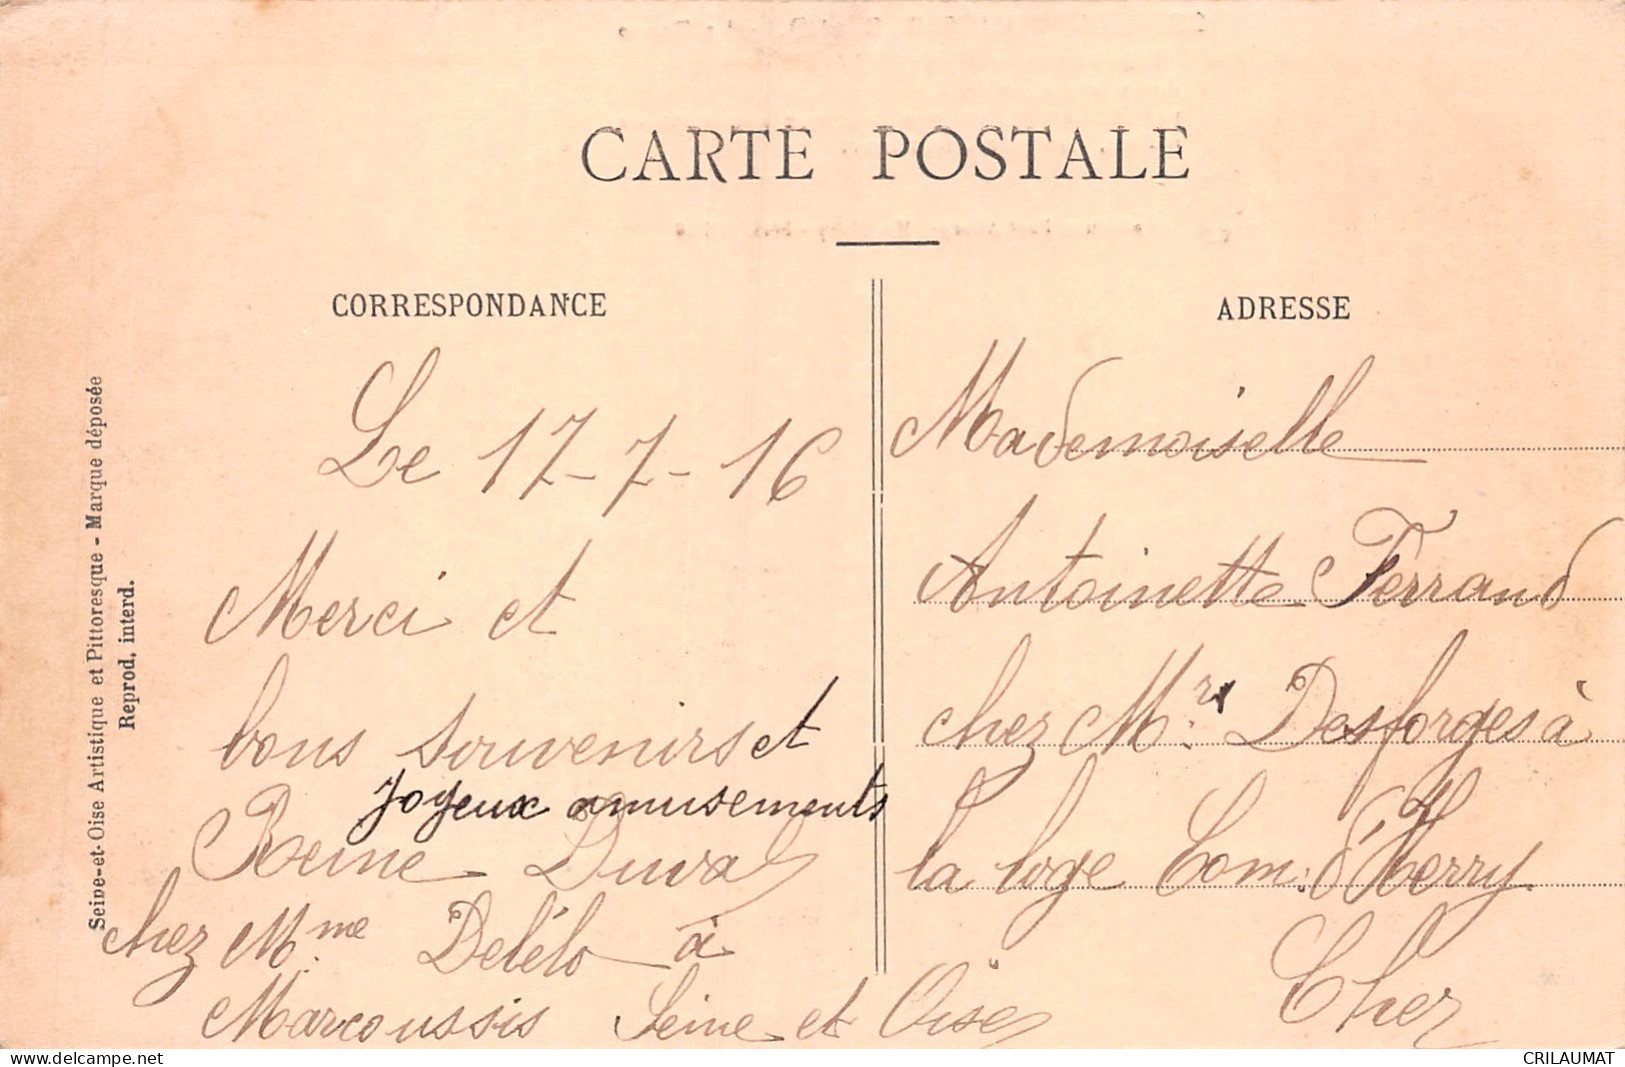 CARTE POSTALE
CORRESPONDANCE
Le 17-7-16
Merci et
bons souvenirs et
joyeux amusements
Reine Duval
chez Mme Delélo à
Marcoussis Seine et Oise
ADRESSE
Mademoiselle
Antoinette Ferrand
chez Mr Desforges à
la loge Com. d'Herry
Cher
Seine-et-Oise Artistique et Pittoresque - Marque déposée
Reprod. interd.
CRILAUMAT